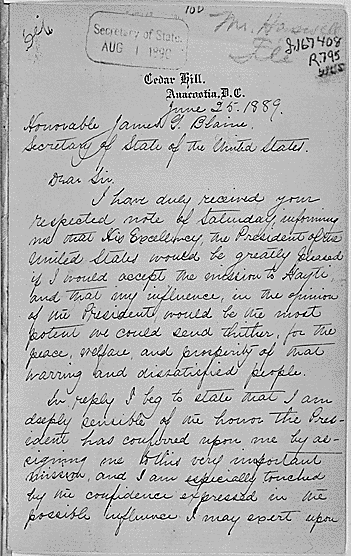 100
Secretary of State.
AUG 1 1890
Mr.
File
Cedar Hill.
Anacostia, D.C.
June 25. 1889.
Honorable James G. Blaine.
Secretary of State of the United States.
Dear Sir.
I have duly received your
respected note of Saturday, informing
me that His Excellency, the President of the
United States would be greatly pleased
if I would accept the mission to Hayti,
and that my influence, in the opinion
of the President would be the most
potent we could send thither, for the
peace, welfare, and prosperity of that
warring and dissatisfied people.
In reply I beg to state that I am
deeply sensible of the honor the Pres-
ident has conferred upon me by as-
signing me to this very important
mission, and I am especially touched
by the confidence expressed in the
possible influence I may exert upon